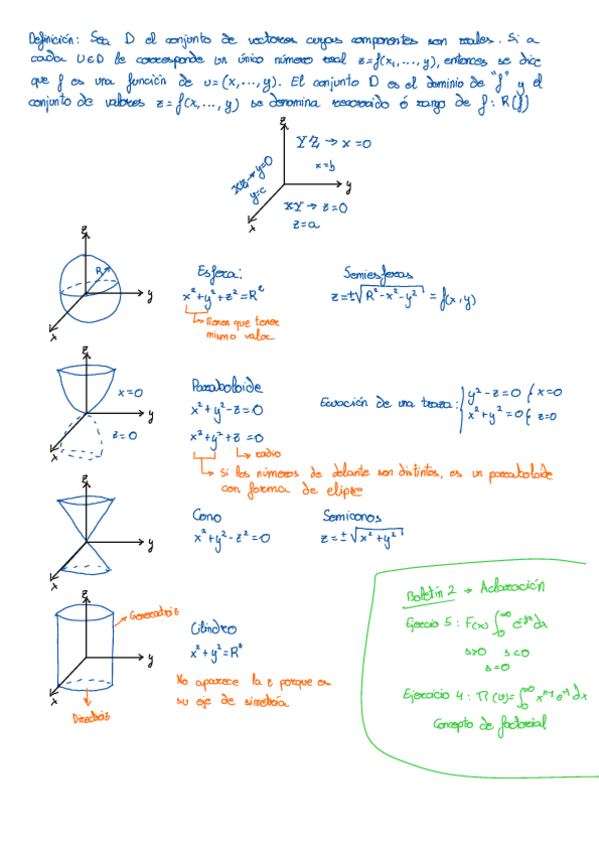 Definición: Sea D el conjunto de vectores cuyas componentes son reales. Si a
cada U∈D le corresponde un único número real z=f(x₁,...,y), entonces se dice
que f es una función de u=(x,...,y). El conjunto D es el dominio de "f" y el
conjunto de valores z=f(x,...,y) se denomina recorrido ó rango de f: R(f)
z
YZ → x=0
x=b
XZ → y=0
y=c
y
XY → z=0
z=a
x
z
R
y
x
Esfera:
x²+y²+z²=R²
Tienen que tener
mismo valor
Semiesferas
z=±√R²-x²-y² = f(x,y)
z
x=0
y
z=0
x
Paraboloide
x²+y²-z=0
x²+y²+z=0
radio
Si los números de delante son distintos, es un paraboloide
con forma de elipse
Ecuación de una traza:
y²-z=0 { x=0
x²+y²=0 { z=0
z
y
x
Cono
x²+y²-z²=0
Semiconos
z=±√x²+y²
z
Generatriz
y
x
Directriz
Cilindro
x²+y²=R²
No aparece la z porque es
su eje de simetría
Boletín 2 → Aclaración
Ejercicio 5: F(x) ∫₀^∞ dx
s>0 s<0
s=0
Ejercicio 4: ∫₀^∞ dx
Concepto de factorial